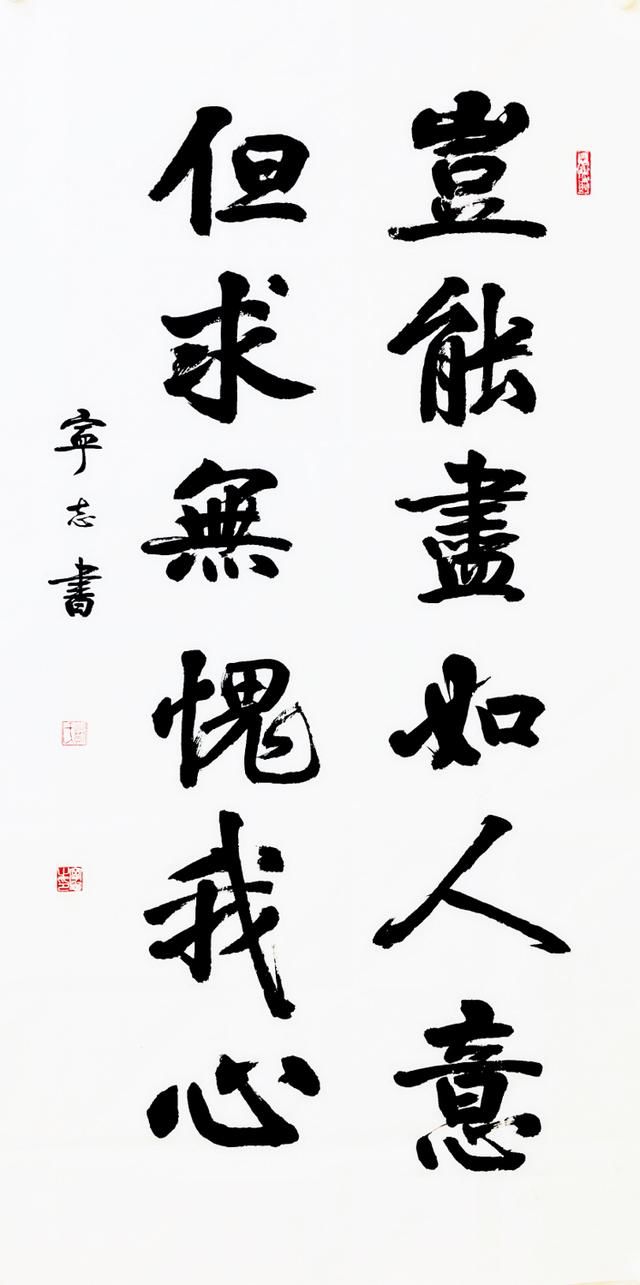 豈能盡如人意
但求無愧我心
寧志書